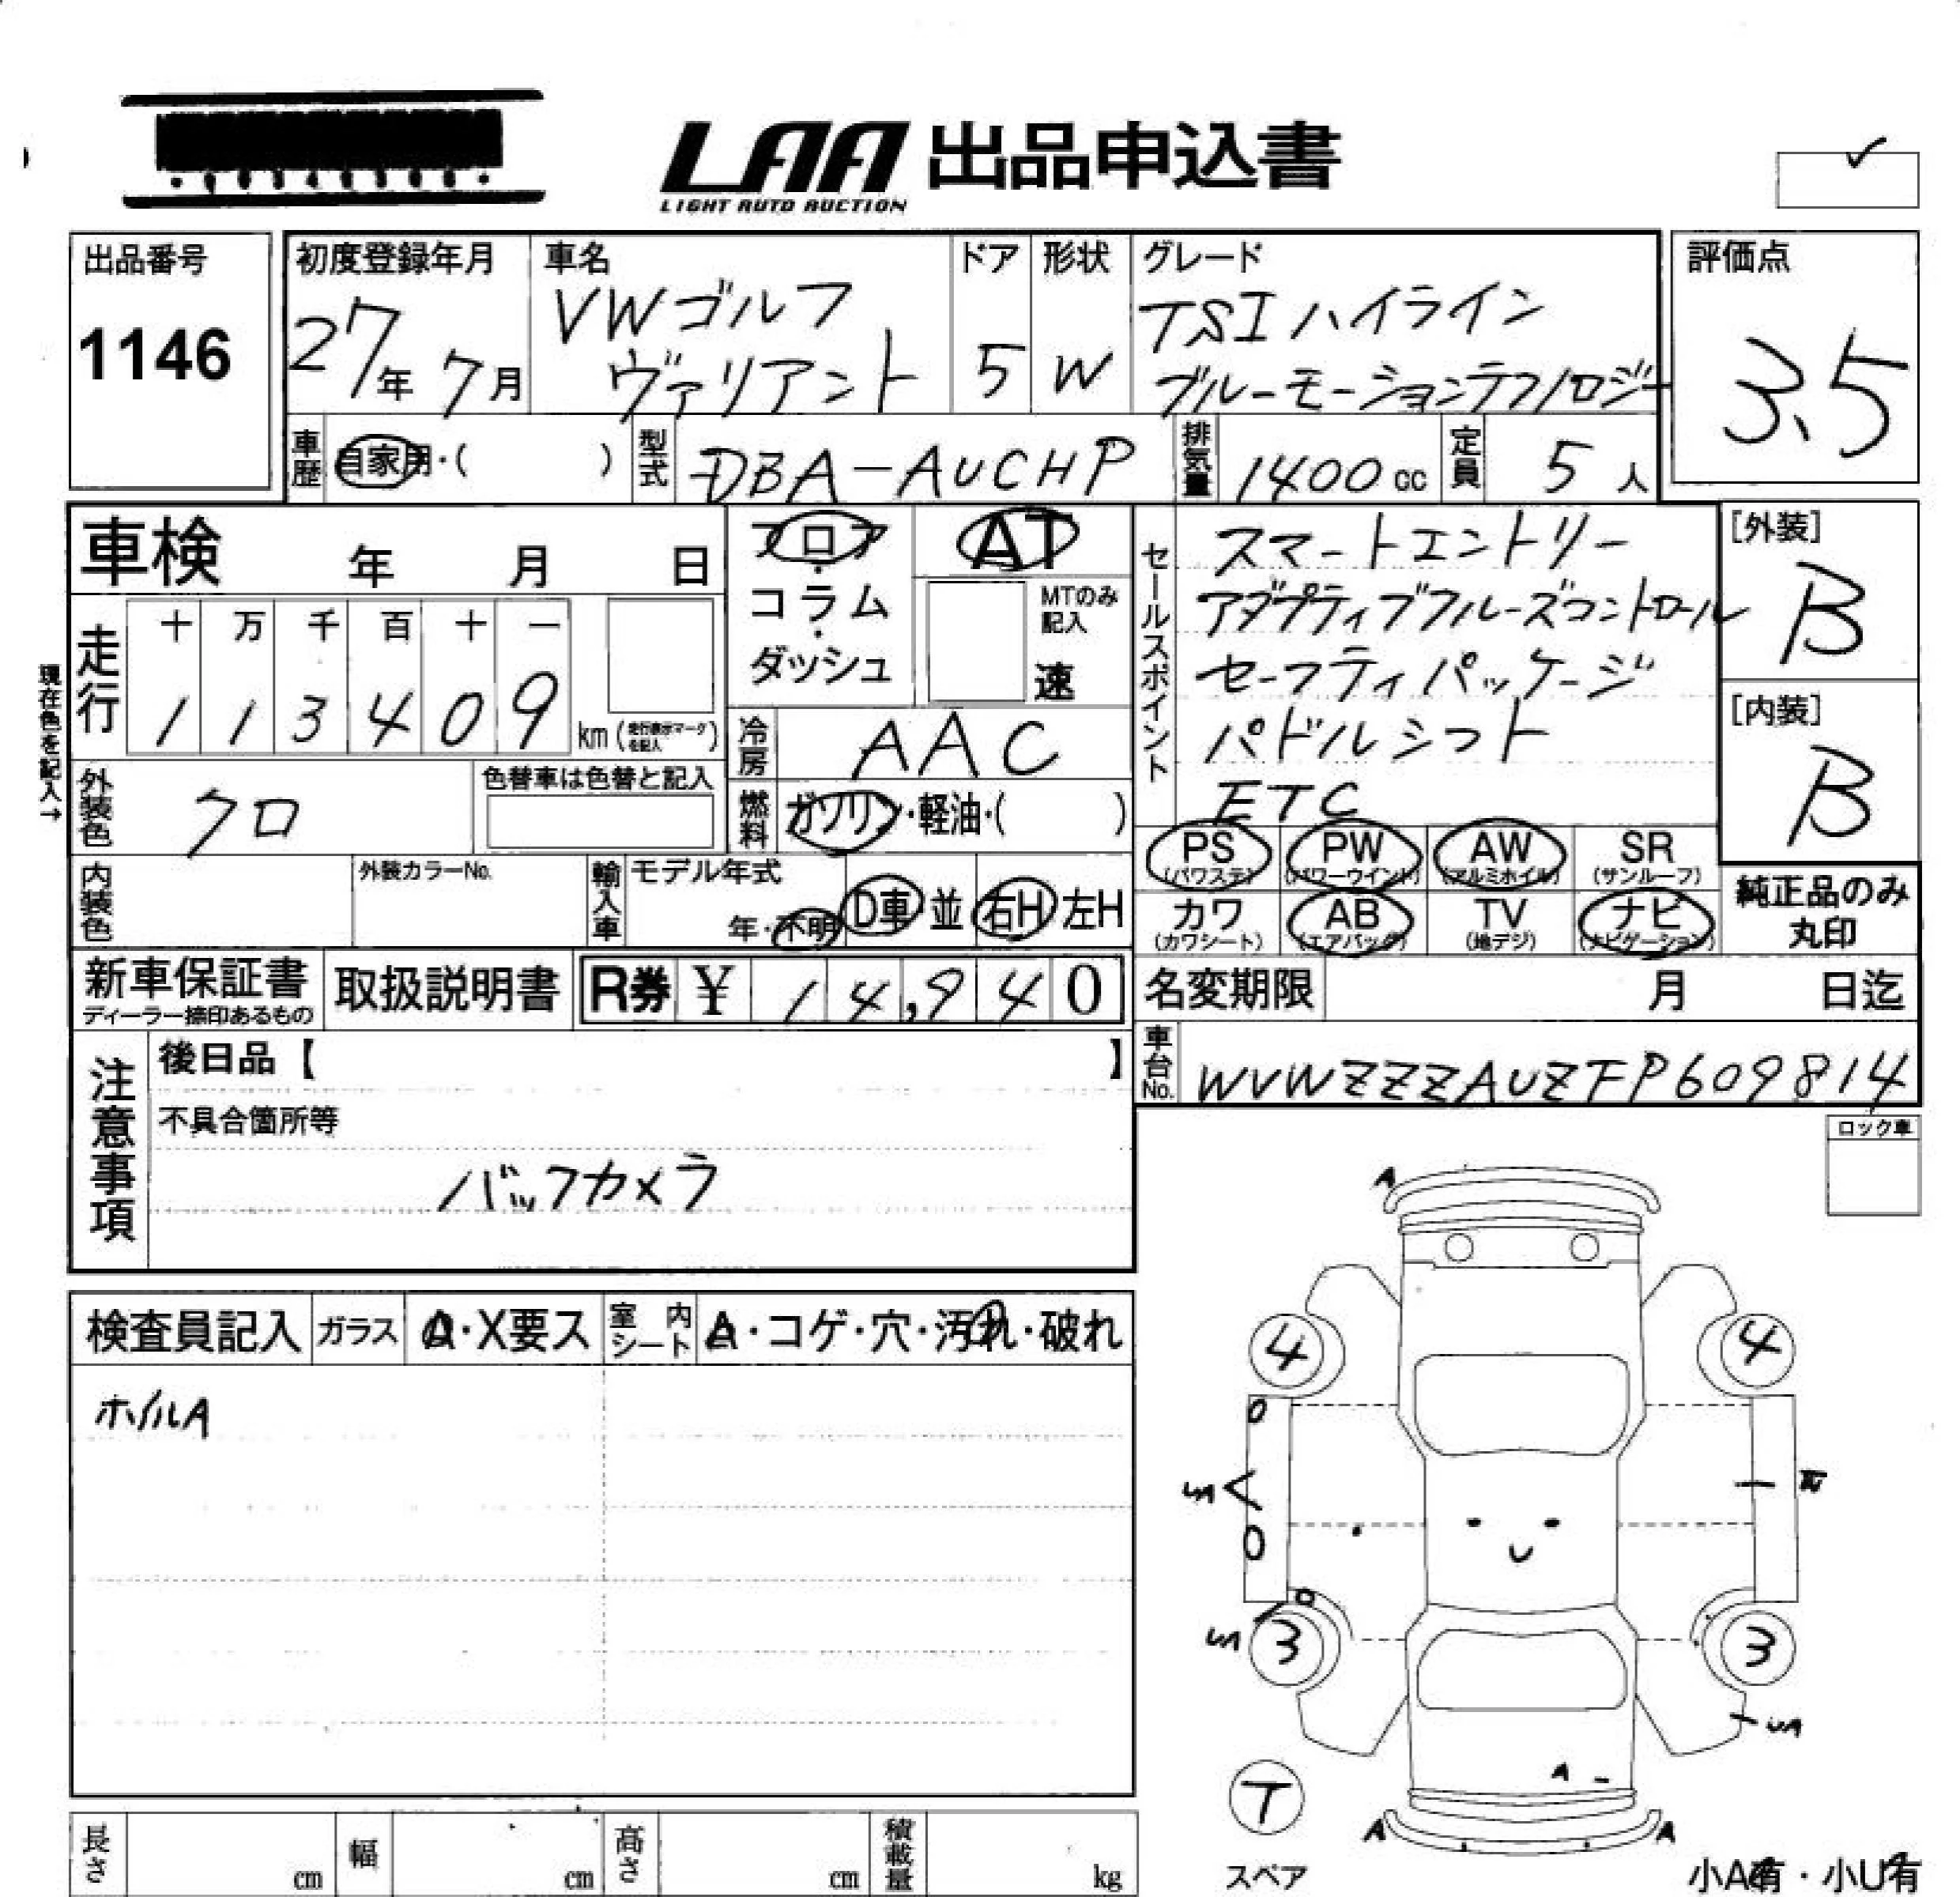 LAA 出品申込書
LIGHT AUTO AUCTION
出品番号
1146
初度登録年月
27年 7月
車名
VWゴルフ
ヴァリアント
ドア
5
形状
W
グレード
TSIハイライン
ブルーモーションテクノロジー
評価点
3.5
車歴
自家用・( )
型式
DBA-AUCHP
排気量
1400cc
定員
5人
車検 年 月 日
フロア
・
コラム
・
ダッシュ
AT
MTのみ
記入
速
セールスポイント
スマートエントリー
アダプティブクルーズコントロール
セーフティパッケージ
パドルシフト
ETC
[外装]
B
[内装]
B
現在色を記入→
走行
十 万 千 百 十 一
1 1 3 4 0 9 km(走行表示マークを記入)
冷房
AAC
外装色
クロ
色替車は色替と記入
燃料
ガソリン・軽油・( )
PS (パワステ)
PW (パワーウインド)
AW (アルミホイル)
SR (サンルーフ)
カワ (カワシート)
AB (エアバッグ)
TV (地デジ)
ナビ (ナビゲーション)
純正品のみ
丸印
内装色
外装カラーNo.
輸入車
モデル年式
年・不明
D車・並
右H・左H
新車保証書
ディーラー捺印あるもの
取扱説明書
R券 ¥ 14,940
名変期限 月 日迄
車台No.
WVWZZZAUZFP609814
注意事項
後日品【 】
不具合箇所等
バックカメラ
ロック車
検査員記入
ガラス
A・X要ス
室内シート
A・コゲ・穴・汚れ・破れ
ホイルA
A
4 4
3 3
A
A A
T
スペア
小A有・小U有
長さ cm
幅 cm
高さ cm
積載量 kg